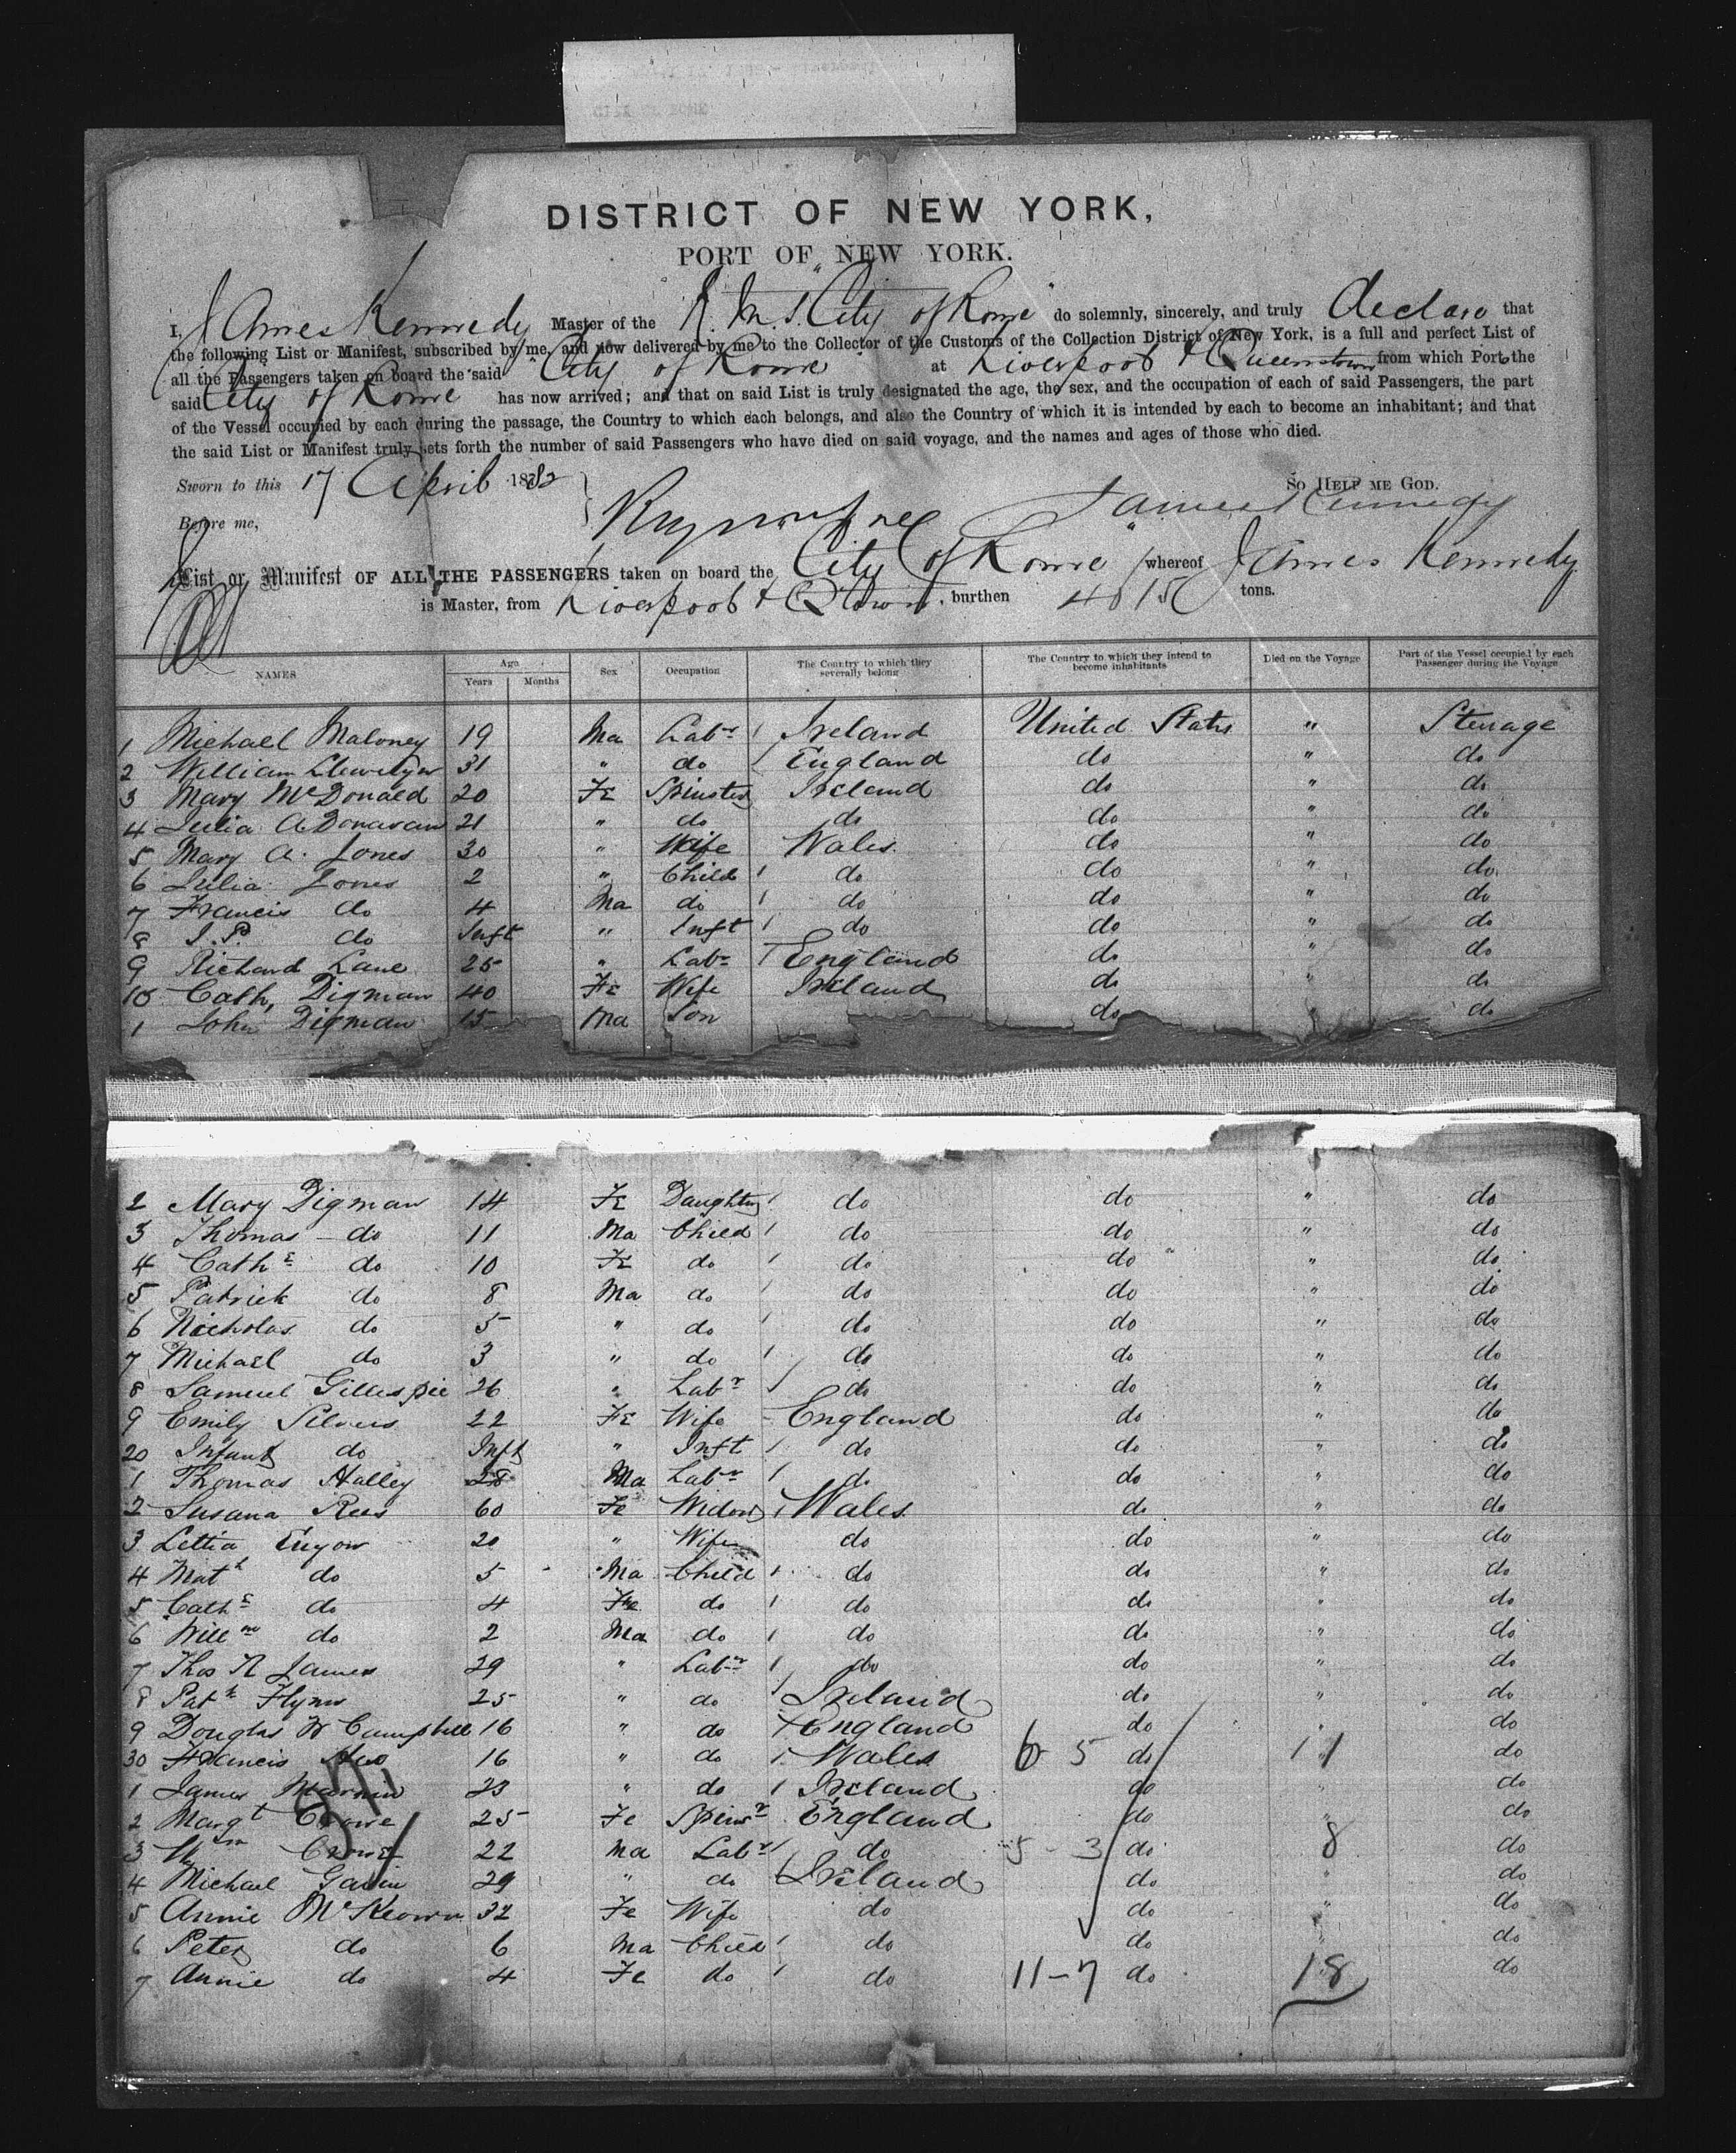 DISTRICT OF NEW YORK,
PORT OF NEW YORK.
I, James Kennedy Master of the R. M. S. "City of Rome" do solemnly, sincerely, and truly declare that
the following List or Manifest, subscribed by me, and now delivered by me to the Collector of the Customs of the Collection District of New York, is a full and perfect List of
all the Passengers taken on board the said "City of Rome" at Liverpool & Queenstown from which Port the
said City of Rome has now arrived; and that on said List is truly designated the age, the sex, and the occupation of each of said Passengers, the part
of the Vessel occupied by each during the passage, the Country to which each belongs, and also the Country of which it is intended by each to become an inhabitant; and that
the said List or Manifest truly sets forth the number of said Passengers who have died on said voyage, and the names and ages of those who died.
Sworn to this 17 April 1882 So HELP ME GOD.
Before me, James Kennedy
List or Manifest OF ALL THE PASSENGERS taken on board the "City of Rome" whereof James Kennedy
is Master, from Liverpool & Q'Town, burthen tons.
NAMES Age Years Months Sex Occupation The Country to which they severally belong The Country to which they intend to become inhabitants Died on the Voyage Part of the Vessel occupied by each Passenger during the Voyage
1 Michael Maloney 19 Ma Labr Ireland United States " Steerage
2 William Llewelyn 31 " do England do " do
3 Mary McDonald 20 Fe Spinster Ireland do " do
4 Julia A Donavan 21 " do do do " do
5 Mary A. Jones 30 " Wife Wales do " do
6 Julia Jones 2 " Child do do " do
7 Francis do 4 Ma do do do " do
8 J. P. do Inft " Inft do do " do
9 Richard Lane 25 " Labr England do " do
10 Cath, Digman 40 Fe Wife Ireland do " do
1 John Digman 15 Ma Son do " do
2 Mary Digman 14 Fe Daughter do do " do
3 Thomas do 11 Ma Child do do " do
4 Cathe do 10 Fe do do do " do
5 Patrick do 8 Ma do do do " do
6 Nicholas do 5 " do do do " do
7 Michael do 3 " do do do " do
8 Samuel Gillespie 26 " Labr do do " do
9 Emily 22 Fe Wife England do " do
20 Infant do Inft " Inft do do " do
1 Thomas Halley 28 Ma Labr do do " do
2 Susana Rees 60 Fe Widow Wales do " do
3 Lettia 20 " Wife do do " do
4 Mat do 5 Ma Child do do " do
5 Cathe do 4 Fe do do do " do
6 Willm do 2 Ma do do do " do
7 Thos R James 29 " Labr do do " do
8 Patk Flynn 25 " do Ireland do " do
9 Douglas W Campbell 16 " do England do " do
30 Francis 16 " do Wales 6 5 do 11 do
1 James 23 " do Ireland do " do
2 Margt Crowe 25 Fe Spinr England do " do
3 Wm Crowe 22 Ma Labr do 5 - 3 do 8 do
4 Michael Gavin 29 " do Ireland do " do
5 Annie McKeown 32 Fe Wife do do " do
6 Peter do 6 Ma Child do do " do
7 Annie do 4 Fe do do 11-7 do 18 do